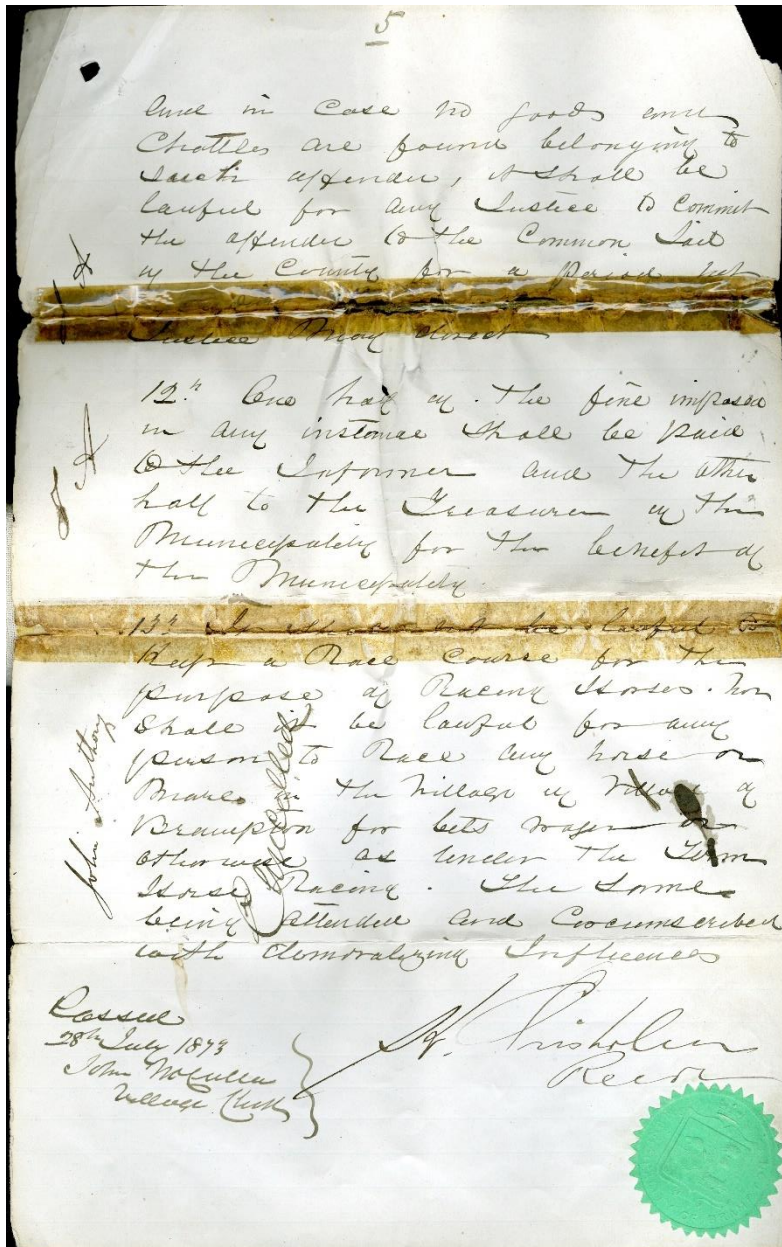 5
and in case no goods and
Chattles are found belonging to
such offender, it shall be
lawful for any Justice to commit
the offender to the Common Jail
of the County for a period not
Justice may direct
12th One half of the fine imposed
in any instance shall be paid
to the Informer and the other
half to the Treasurer of the
Municipality for the benefit of
the Municipality.
13th It shall not be lawful to
Keep a Race course for the
purpose of Racing Horses. nor
shall it be lawful for any
person to Race any horse or
Mare in the Village of Village of
Brampton for bets wager or
otherwise as under the Term
Horse Racing. The same
being attended and Circumscribed
with demoralizing Influences
John Anthony
Cancelled
Passed
28th July 1873
John McCulla
Village Clerk
K. Chisholm
Reeve